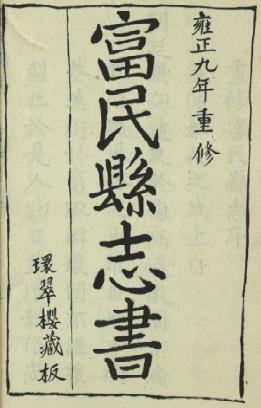 雍正九年重修
富民縣志書
環翠樓藏板